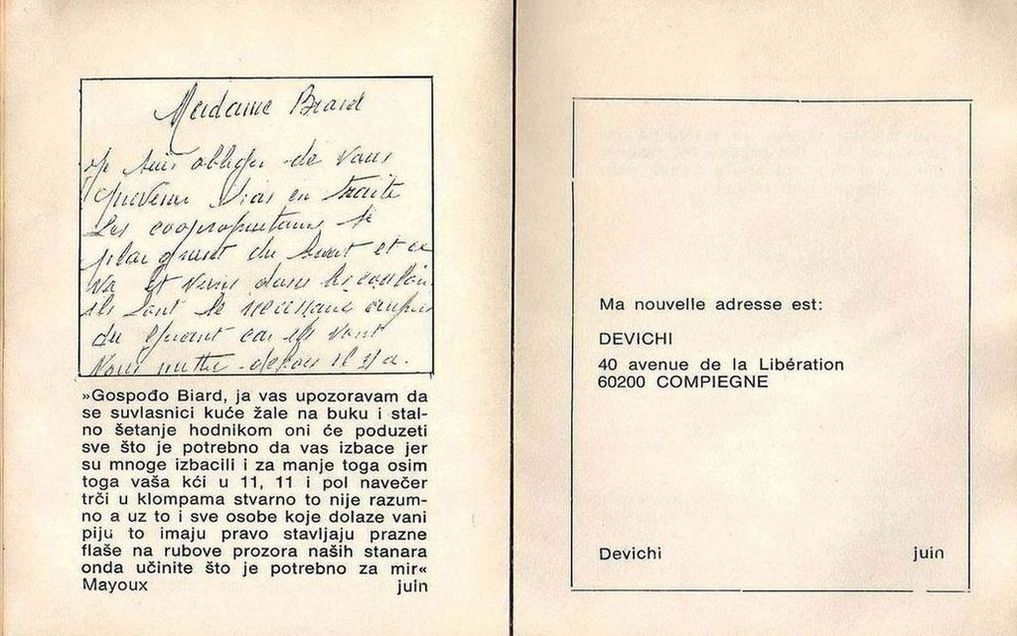 Madame Biard
Je suis obliger de vous
prevenir
Les coopropietaires se
plaignent du bruit et ce
va et viens dans les couloirs
ils font le necessaire
du car ils vont
vous mettre dehors il y a
»Gospođo Biard, ja vas upozoravam da
se suvlasnici kuće žale na buku i stal-
no šetanje hodnikom oni će poduzeti
sve što je potrebno da vas izbace jer
su mnoge izbacili i za manje toga osim
toga vaša kći u 11, 11 i pol navečer
trči u klompama stvarno to nije razum-
no a uz to i sve osobe koje dolaze vani
piju to imaju pravo stavljaju prazne
flaše na rubove prozora naših stanara
onda učinite što je potrebno za mir«
Mayoux juin
Ma nouvelle adresse est:
DEVICHI
40 avenue de la Libération
60200 COMPIEGNE
Devichi juin